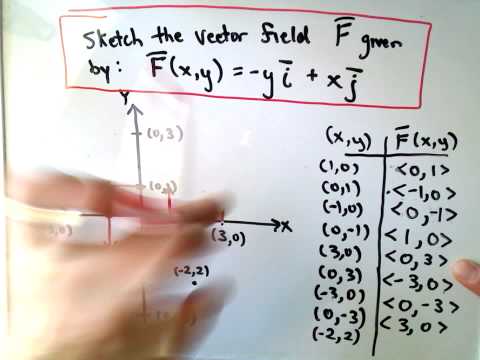 Sketch the vector field F̅ given
by: F̅(x,y) = -y i̅ + x j̅
Y
(0,3)
X
(3,0)
(-2,2)
(x,y) F̅(x,y)
(1,0) <0,1>
(0,1) <-1,0>
(-1,0) <0,-1>
(0,-1) <1,0>
(3,0) <0,3>
(0,3) <-3,0>
(-3,0) <0,-3>
(0,-3) <3,0>
(-2,2)